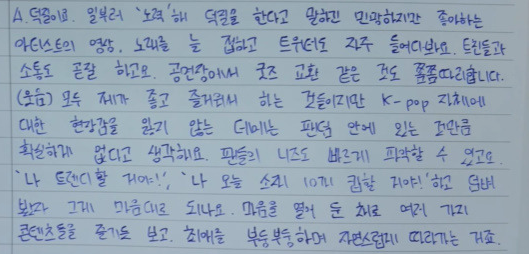 A. 덕질이요. 일부러 '노력'해 덕질을 한다고 말하긴 민망하지만 좋아하는
아티스트의 영상, 노래를 늘 접하고 트위터도 자주 들어다봐요. 트친들과
소통도 곧잘 하고요. 공연장에서 굿즈 교환 같은 것도 쫄쫄따리합니다.
(웃음) 모두 제가 좋고 즐거워서 하는 것들이지만 K-pop 자체에
대한 현장감을 잃지 않는 데에는 팬덤 안에 있는 것만큼
확실하게 없다고 생각해요. 팬들의 니즈도 빠르게 파악할 수 있고요.
'나 트렌디할 거야!', '나 오늘 소리 10끼 컴할 거야!' 하고 덤벼
봤자 그게 마음대로 되나요. 마음을 열어 둔 채로 여러 가지
콘텐츠들을 즐기듯 보고, 최애를 부둥부둥하며 자연스럽게 따라가는 거죠.